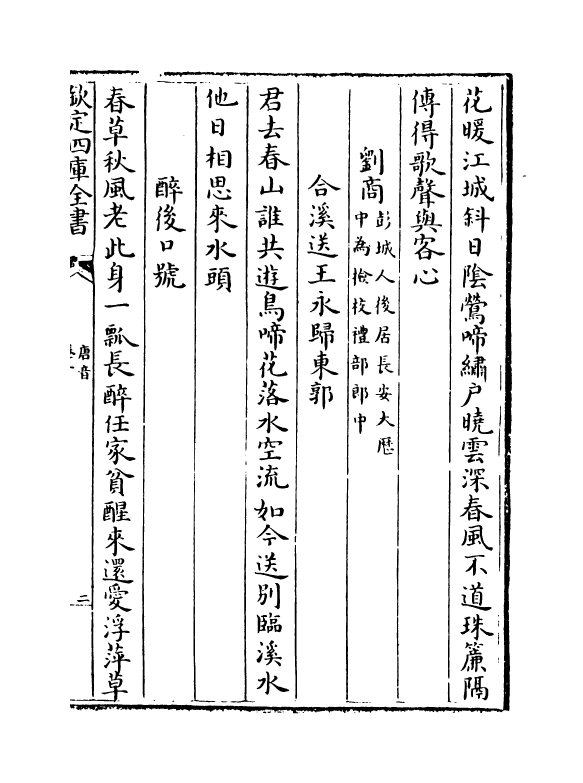 花暖江城斜日陰鶯啼繡户曉雲深春風不道珠簾隔
傳得歌聲與客心
劉商
彭城人後居長安大厯
中為檢校禮部郎中
合溪送王永歸東郭
君去春山誰共遊鳥啼花落水空流如今送别臨溪水
他日相思來水頭
醉後口號
春草秋風老此身一瓢長醉任家貧醒來還愛浮萍草
欽定四庫全書
唐音
二